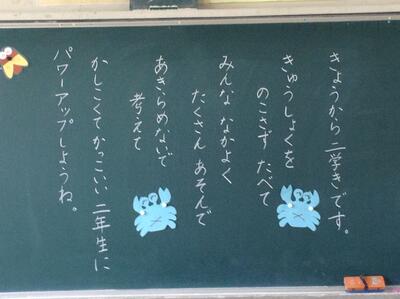 きょうから 二学きです。
きゅうしょくを
のこさず たべて
みんな なかよく
たくさん あそんで
あきらめないで
考えて
かしこくてかっこいい 二年生に
パワーアップしようね。